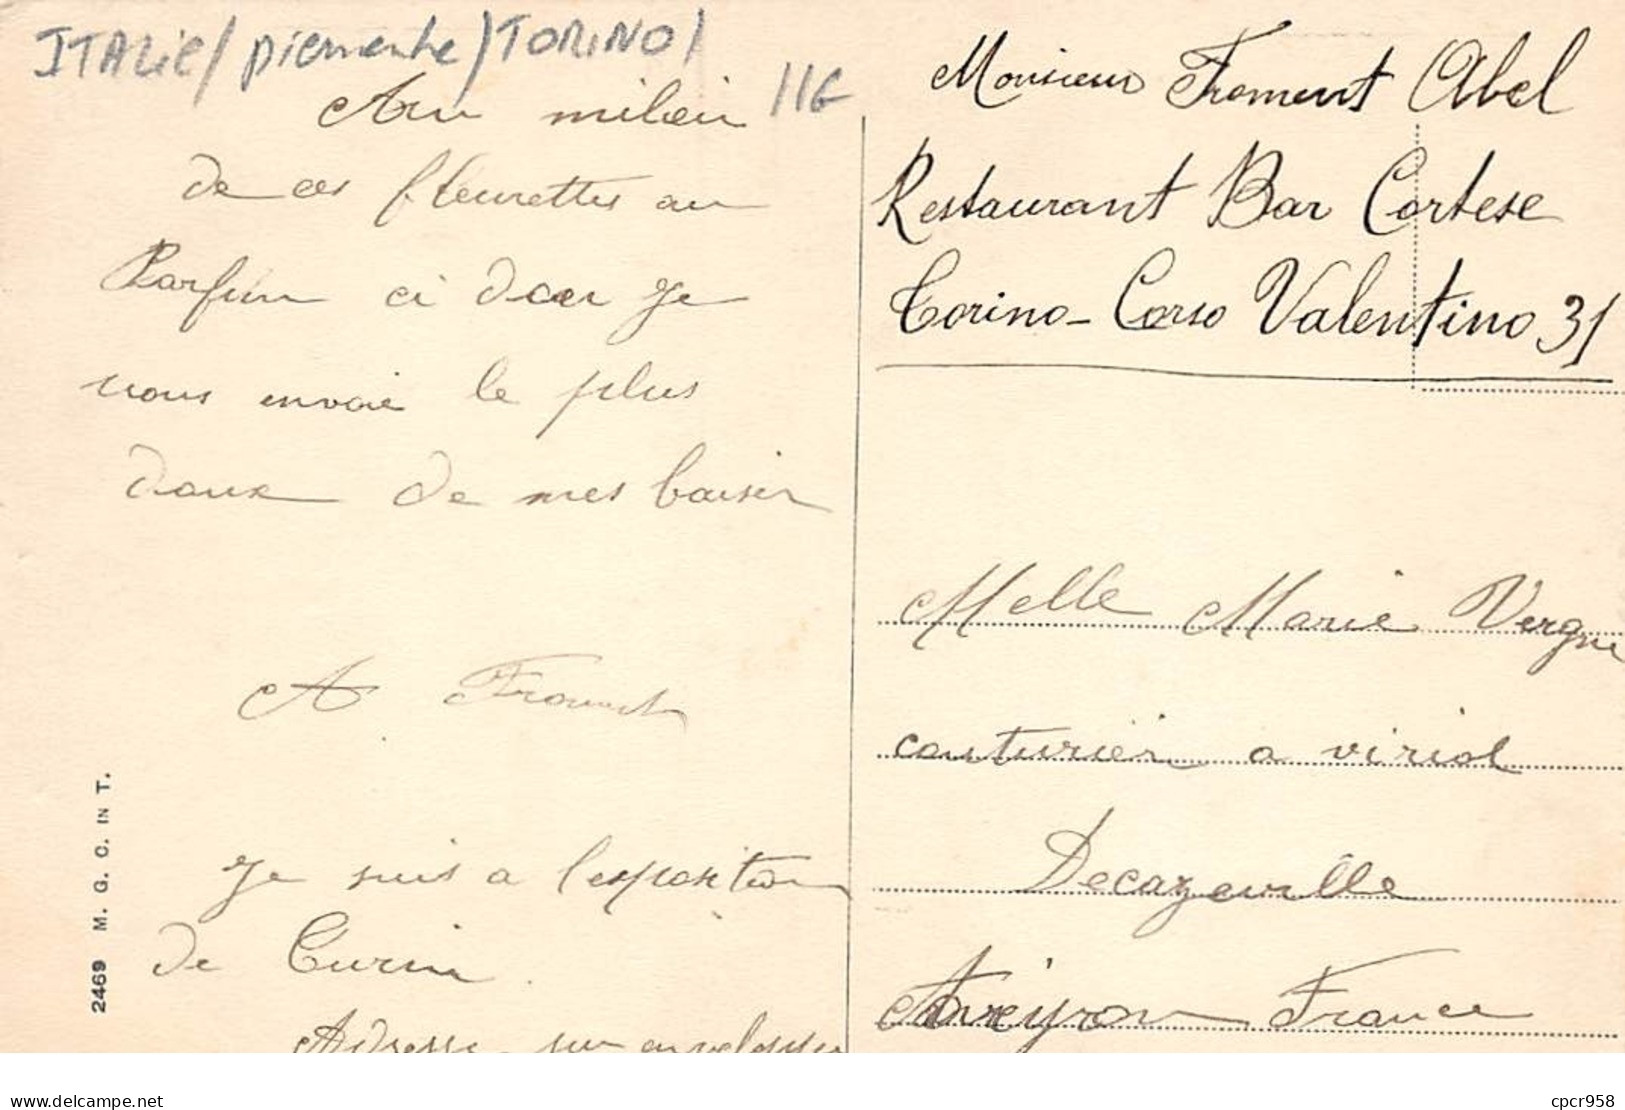 ITALIE/piemonte/TORINO/
116
Au milieu
de ces fleurettes au
Parfun ci doux Je
vous envoie le plus
doux de mes baiser
A Froment
Je suis a l'exposition
de Turin
Adresse sur enveloppe
2469 M. G. C. IN T.
Monsieur Froment Abel
Restaurant Bar Cortese
Torino - Corso Valentino 31
Melle Marie Vergne
couturier a viriol
Decazeville
Aveyron France
cpcr958
www.delcampe.net